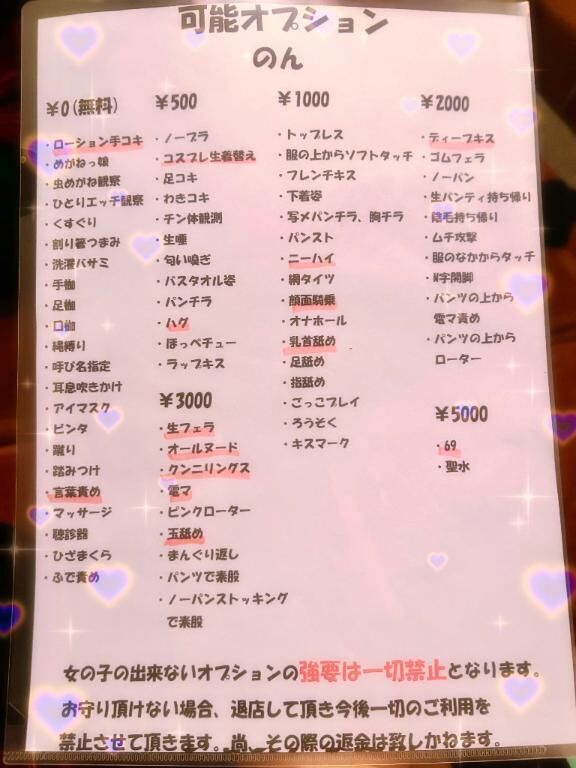 可能オプション
のん
¥0(無料)
・ローション手コキ
・めがねっ娘
・虫めがね観察
・ひとりエッチ観察
・くすぐり
・割り箸つまみ
・洗濯バサミ
・手枷
・足枷
・口枷
・縄縛り
・呼び名指定
・耳息吹きかけ
・アイマスク
・ビンタ
・蹴り
・踏みつけ
・言葉責め
・マッサージ
・聴診器
・ひざまくら
・ふで責め
¥500
・ノーブラ
・コスプレ生着替え
・足コキ
・わきコキ
・チン体観測
・生唾
・匂い嗅ぎ
・バスタオル姿
・パンチラ
・ハグ
・ほっぺチュー
・ラップキス
¥3000
・生フェラ
・オールヌード
・クンニリングス
・電マ
・ピンクローター
・玉舐め
・まんぐり返し
・パンツで素股
・ノーパンストッキング
で素股
¥1000
・トップレス
・服の上からソフトタッチ
・フレンチキス
・下着姿
・写メパンチラ、胸チラ
・パンスト
・ニーハイ
・網タイツ
・顔面騎乗
・オナホール
・乳首舐め
・足舐め
・指舐め
・ごっこプレイ
・ろうそく
・キスマーク
¥2000
・ディープキス
・ゴムフェラ
・ノーパン
・生パンティ持ち帰り
・陰毛持ち帰り
・ムチ攻撃
・服のなかからタッチ
・M字開脚
・パンツの上から
電マ責め
・パンツの上から
ローター
¥5000
・69
・聖水
女の子の出来ないオプションの強要は一切禁止となります。
お守り頂けない場合、退店して頂き今後一切のご利用を
禁止させて頂きます。尚、その際の返金は致しかねます。